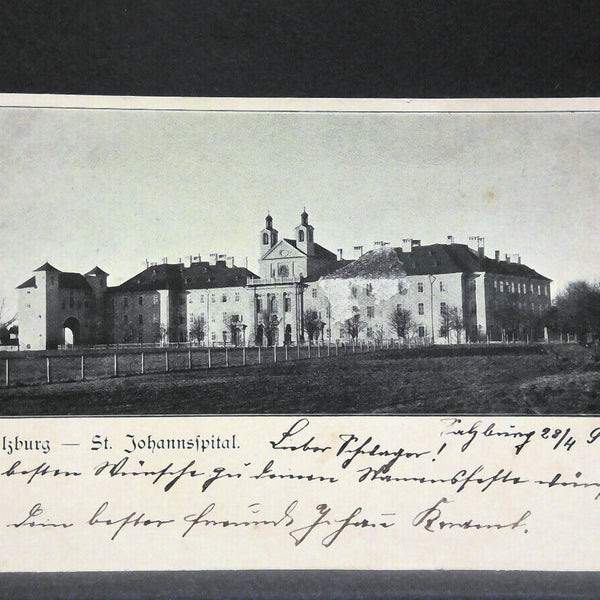 lzburg — St. Johannsſpital.
Salzburg 28/4 9
Lieber Schlager!
besten Wünsche zu deinem Namensfeste wün
Dein bester Freund Johann